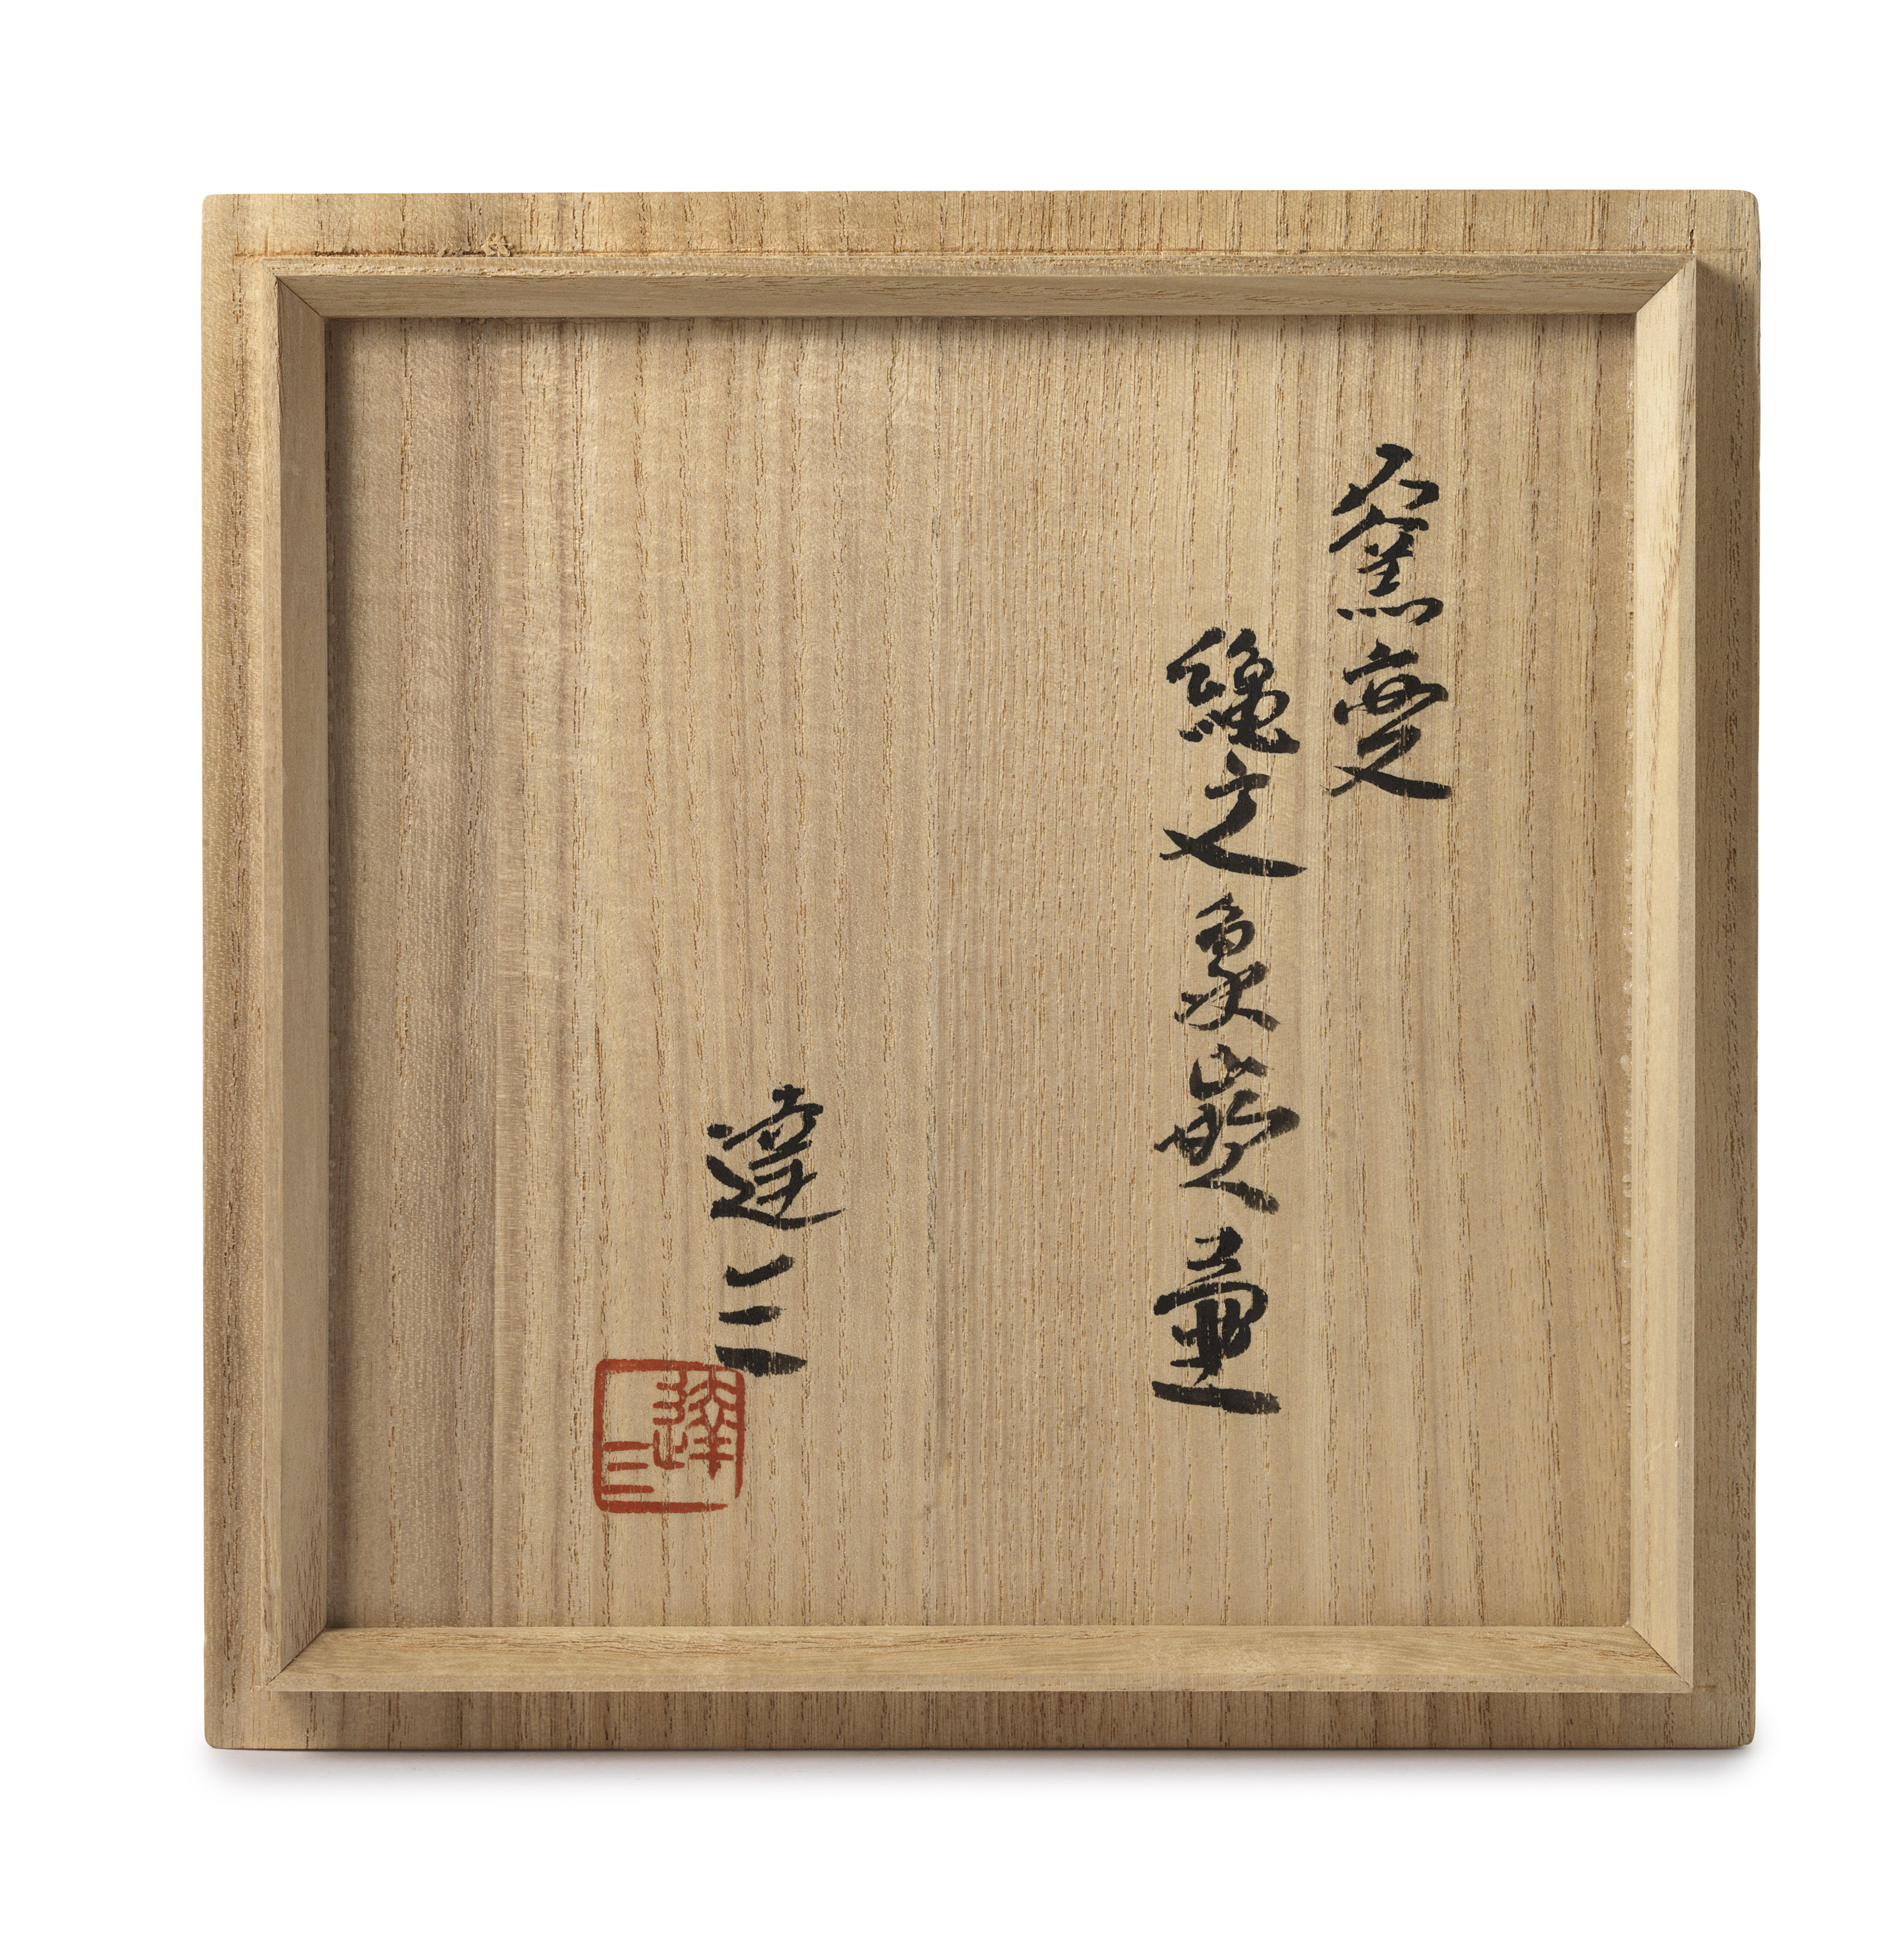 窯變
縄文象嵌壷
達三
達三